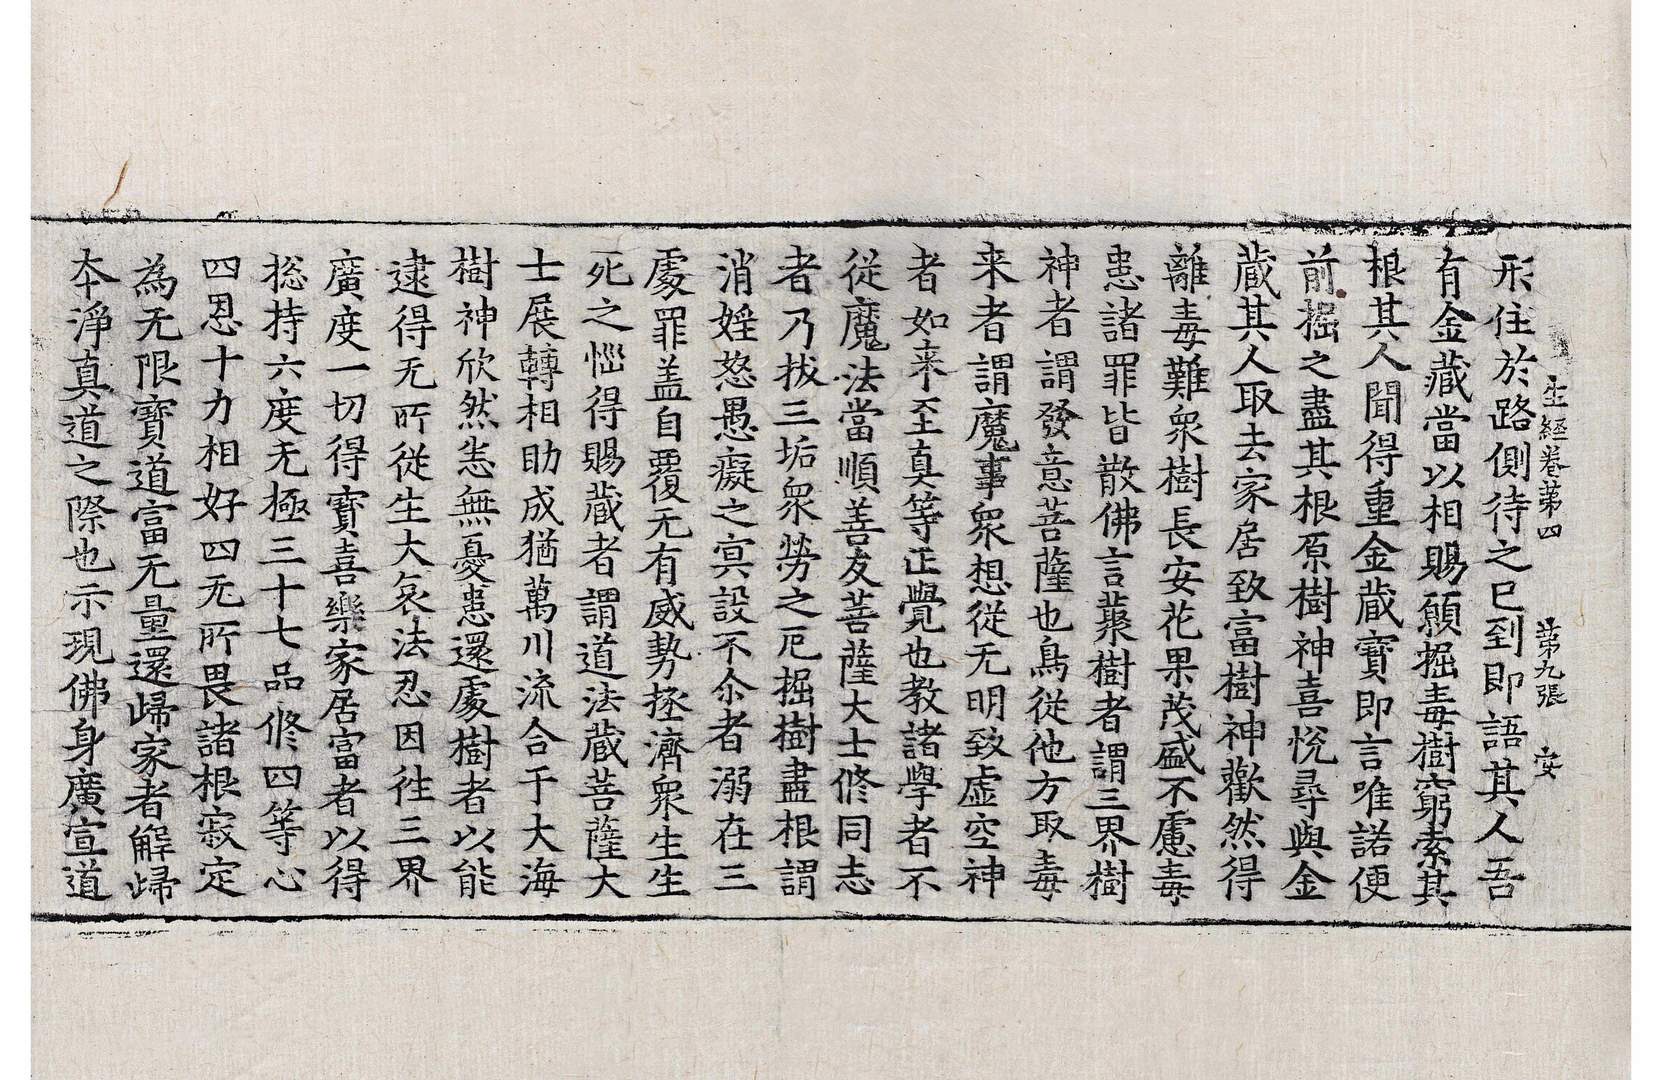 生經卷第四 第九張 安
形住於路側待之已到即語其人吾
有金藏當以相賜願掘毒樹窮索其
根其人聞得重金藏寶即言唯諾便
前掘之盡其根原樹神喜悅尋與金
藏其人取去家居致富樹神歡然得
離毒難眾樹長安花果茂盛不慮毒
患諸罪皆散佛言藂樹者謂三界樹
神者謂發意菩薩也鳥從他方取毒
来者謂魔事眾想從无明致虛空神
者如来至真等正覺也教諸學者不
從魔法當順善友菩薩大士修同志
者乃拔三垢眾勞之厄掘樹盡根謂
消婬怒愚癡之冥設不尒者溺在三
處罪盖自覆无有威勢拯濟眾生生
死之惱得賜藏者謂道法藏菩薩大
士展轉相助成猶萬川流合于大海
樹神欣然恙無憂患還處樹者以能
逮得无所從生大哀法忍因往三界
廣度一切得寶喜樂家居富者以得
捴持六度无極三十七品修四等心
四恩十力相好四无所畏諸根寂定
為无限寶道富无量還歸家者解歸
本淨真道之際也示現佛身廣宣道